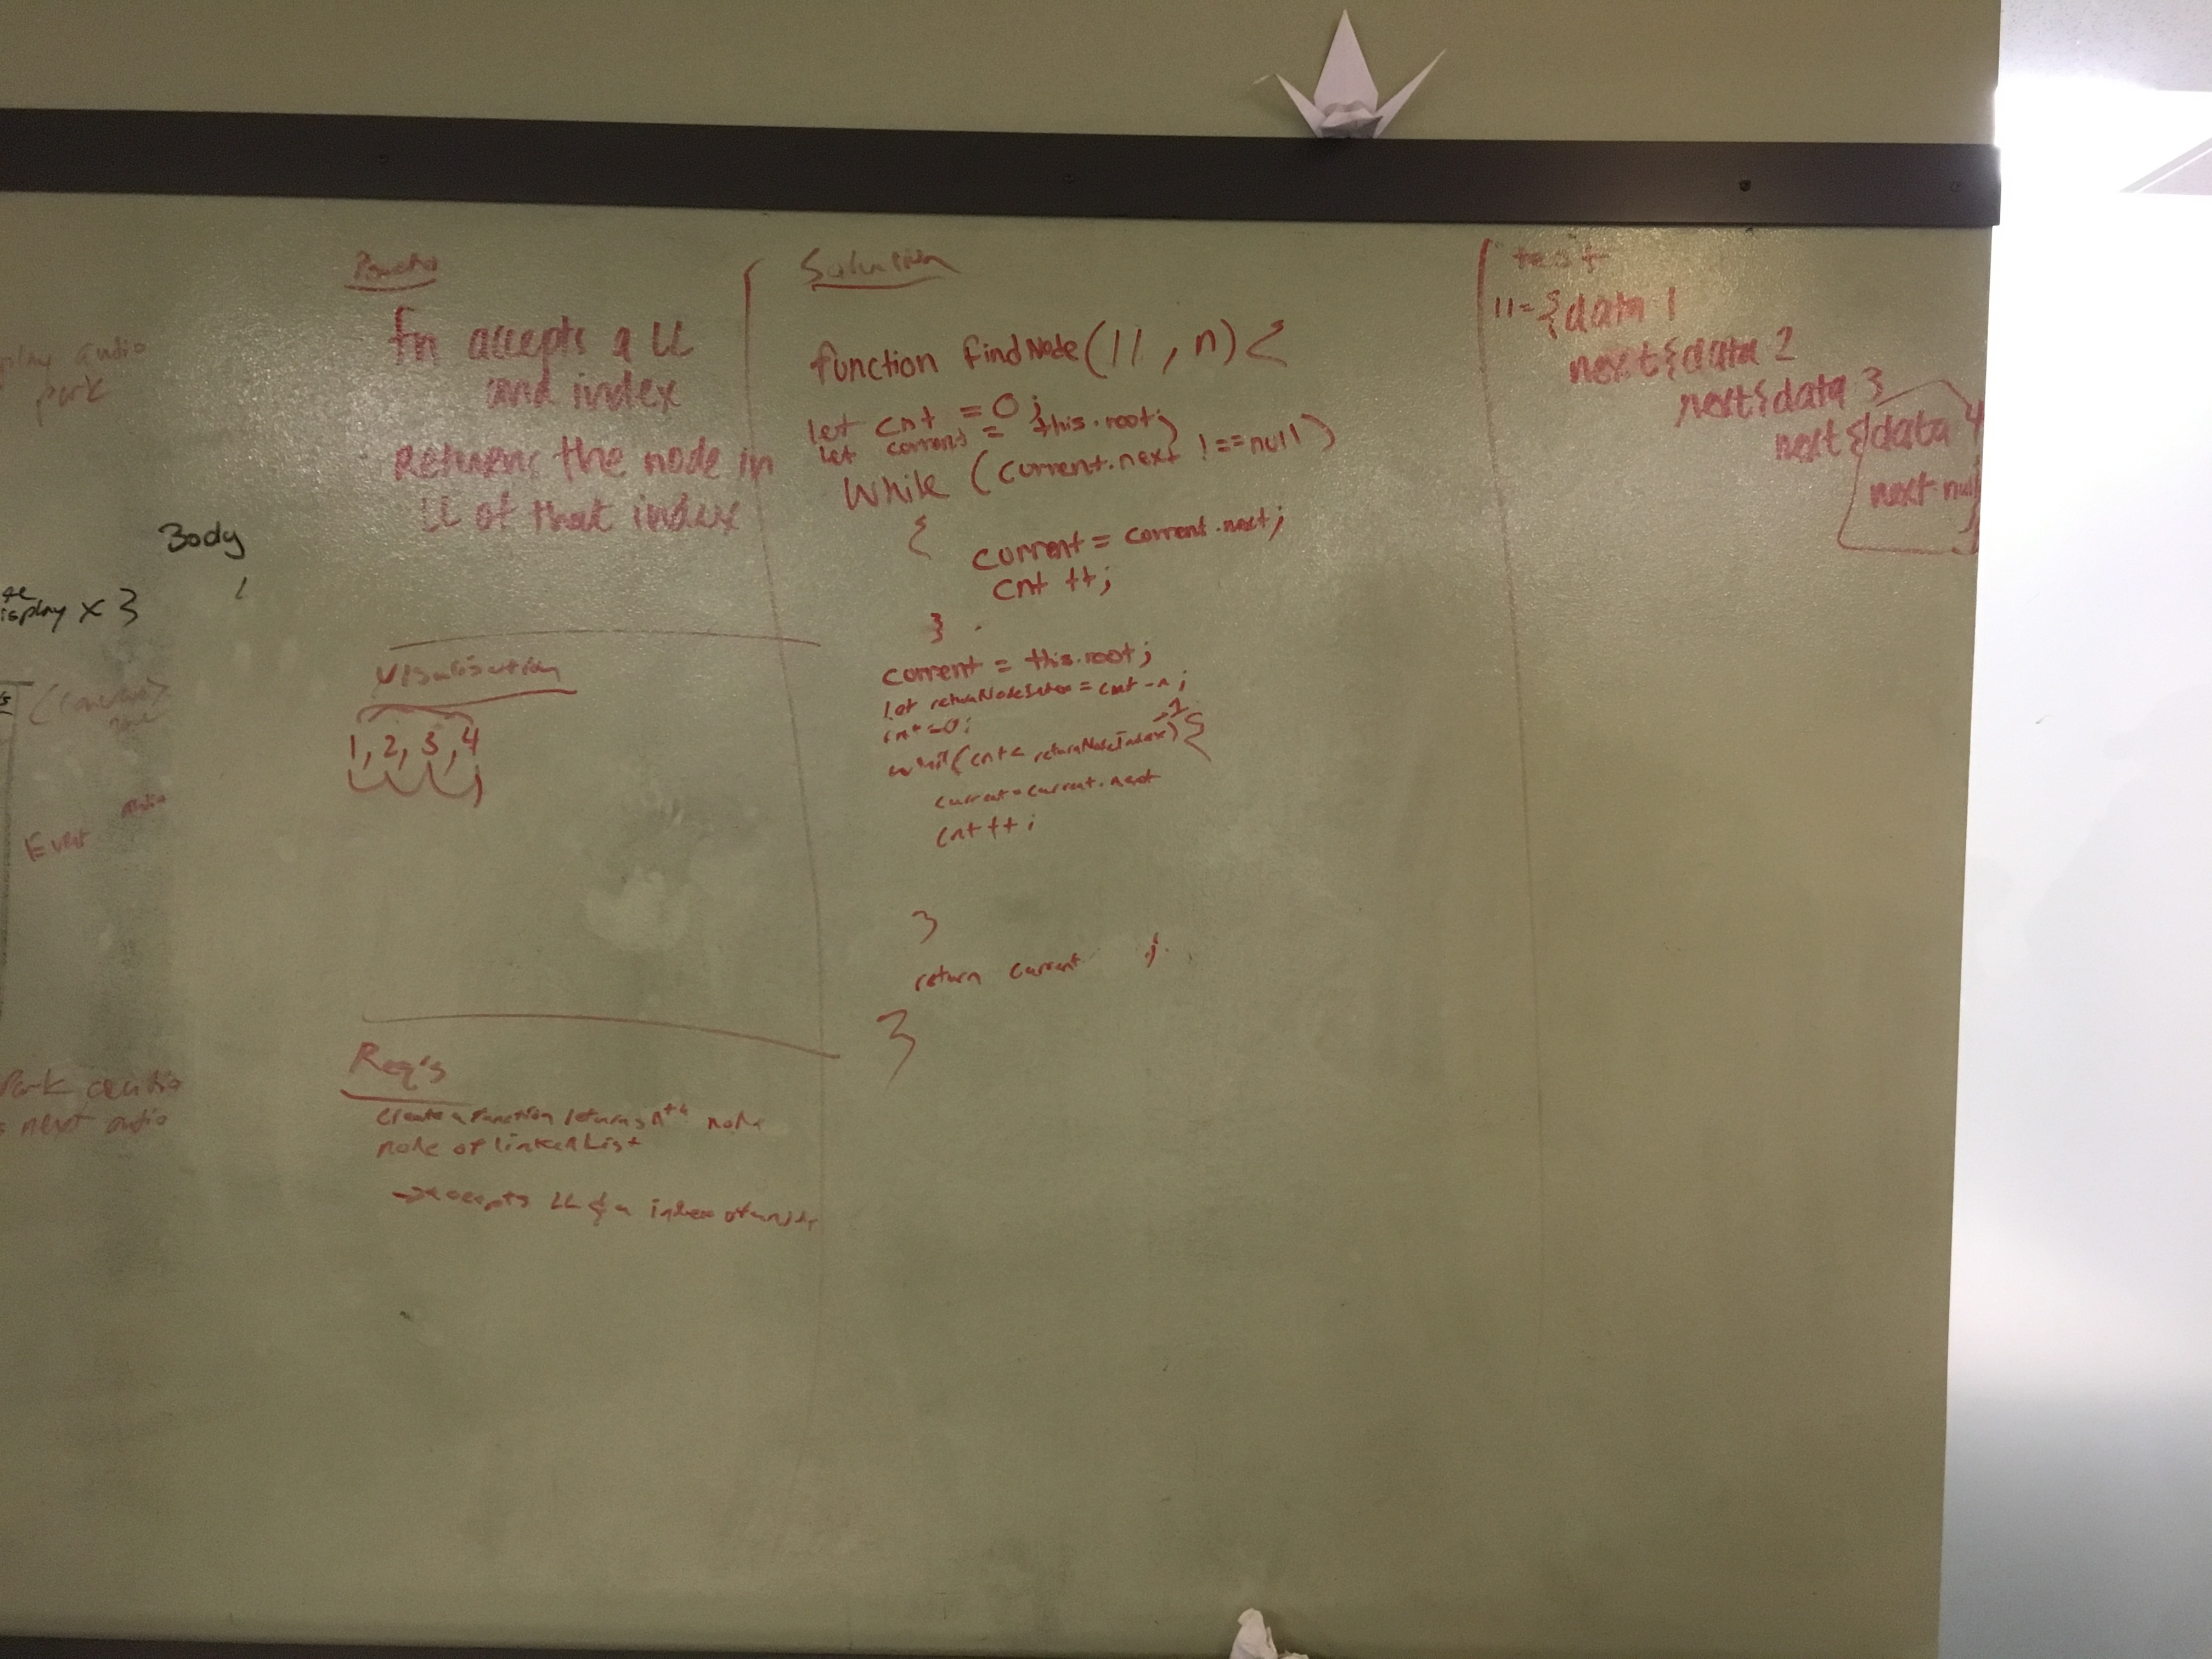 play audio
park
Body
isplay x 3
Event
audio
Park audio
next audio
Pseudo
fn accepts a LL
and index
Returns the node in
LL of that index
Visualisation
1, 2, 3, 4
Req's
Create a function returns nth node
node of linked List
→ accepts LL & a index
Solution
function findNode(ll, n) {
let cnt = 0;
let current = this.root;
While (current.next !== null)
{
current = current.next;
cnt ++;
}
current = this.root;
let returnNodeIndex = cnt - n;
cnt = 0;
while(cnt < returnNodeIndex -1) {
current = current.next
cnt ++;
}
return current ;
}
test
ll = {data 1
next {data 2
next {data 3
next {data 4
next null
}